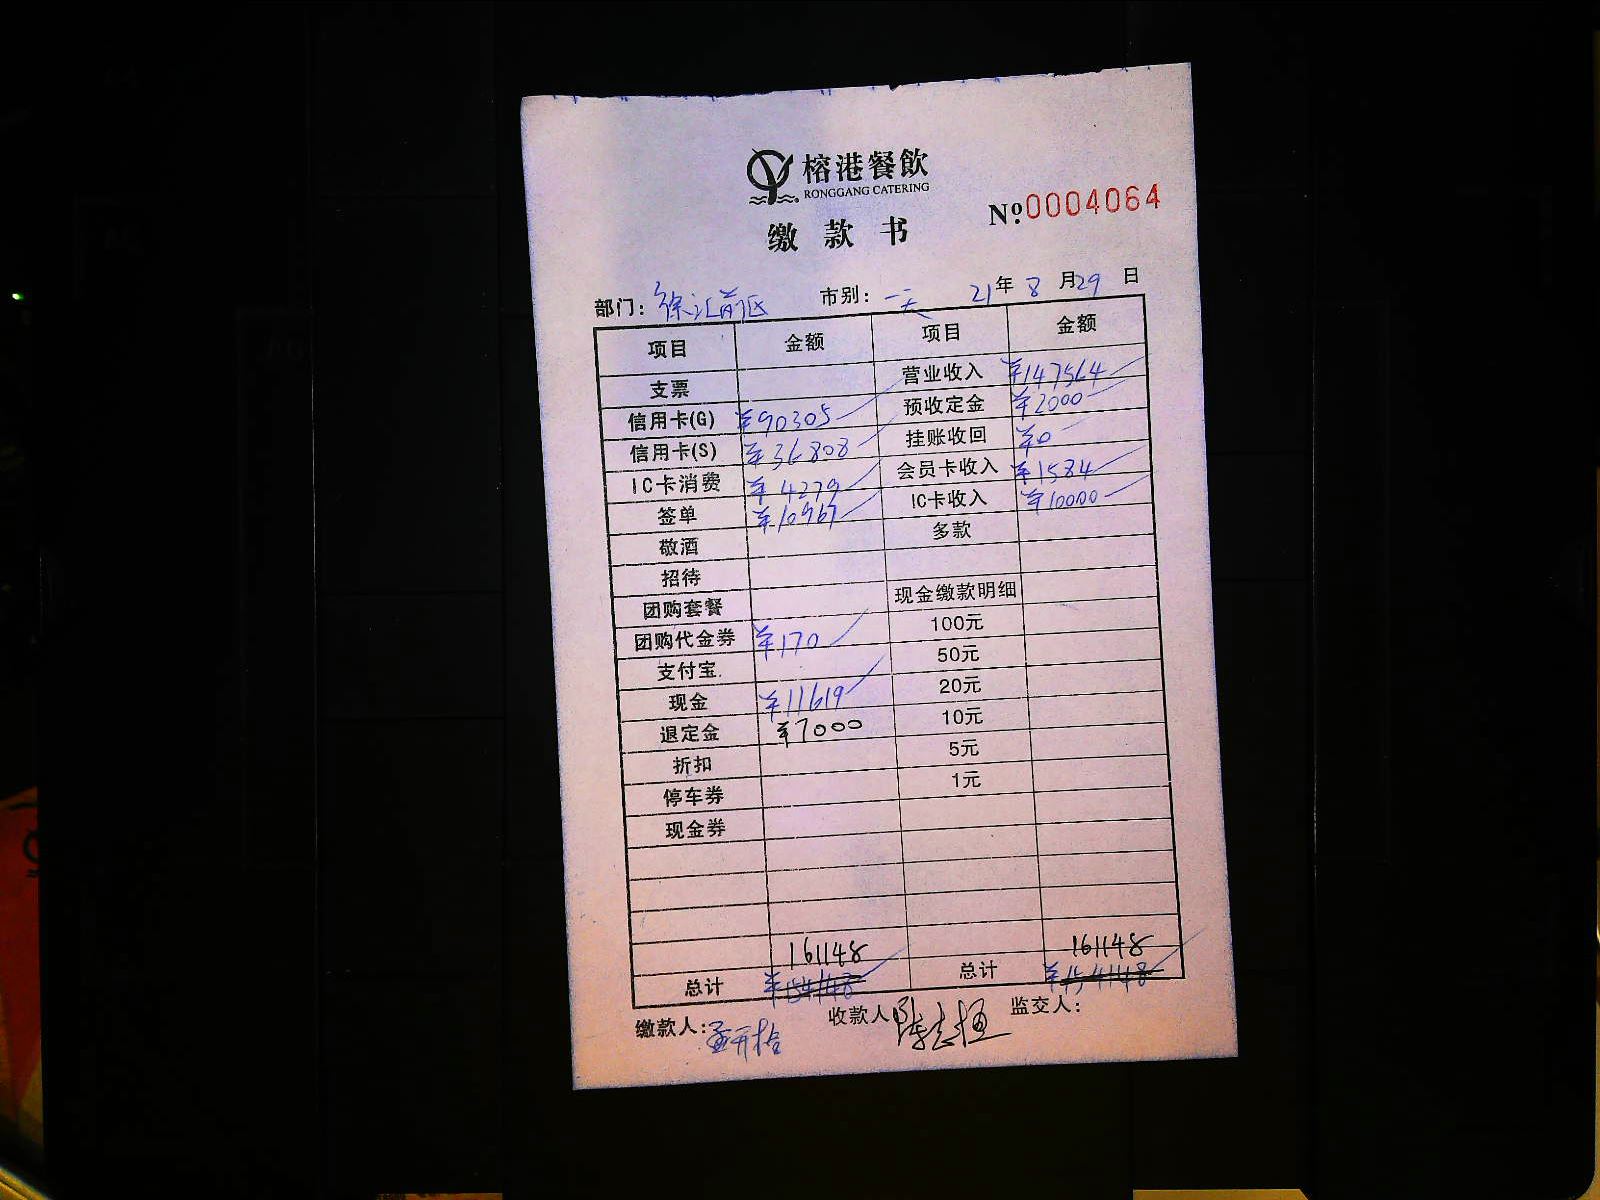 榕港餐飲
RONGGANG CATERING
缴款书 Nº0004064
部门：徐汇前区 市别：一天 21年8月29日
项目 金额 项目 金额
支票 营业收入 ¥147564
信用卡(G) ¥90305 预收定金 ¥2000
信用卡(S) ¥36808 挂账收回 ¥0
IC卡消费 ¥4279 会员卡收入 ¥1584
签单 ¥10967 IC卡收入 ¥10000
敬酒 多款
招待
团购套餐 现金缴款明细
团购代金券 ¥170 100元
支付宝 50元
现金 ¥11619 20元
退定金 ¥7000 10元
折扣 5元
停车券 1元
现金券
161148 161148
总计 ¥154148 总计 ¥154148
缴款人： 收款人 监交人：